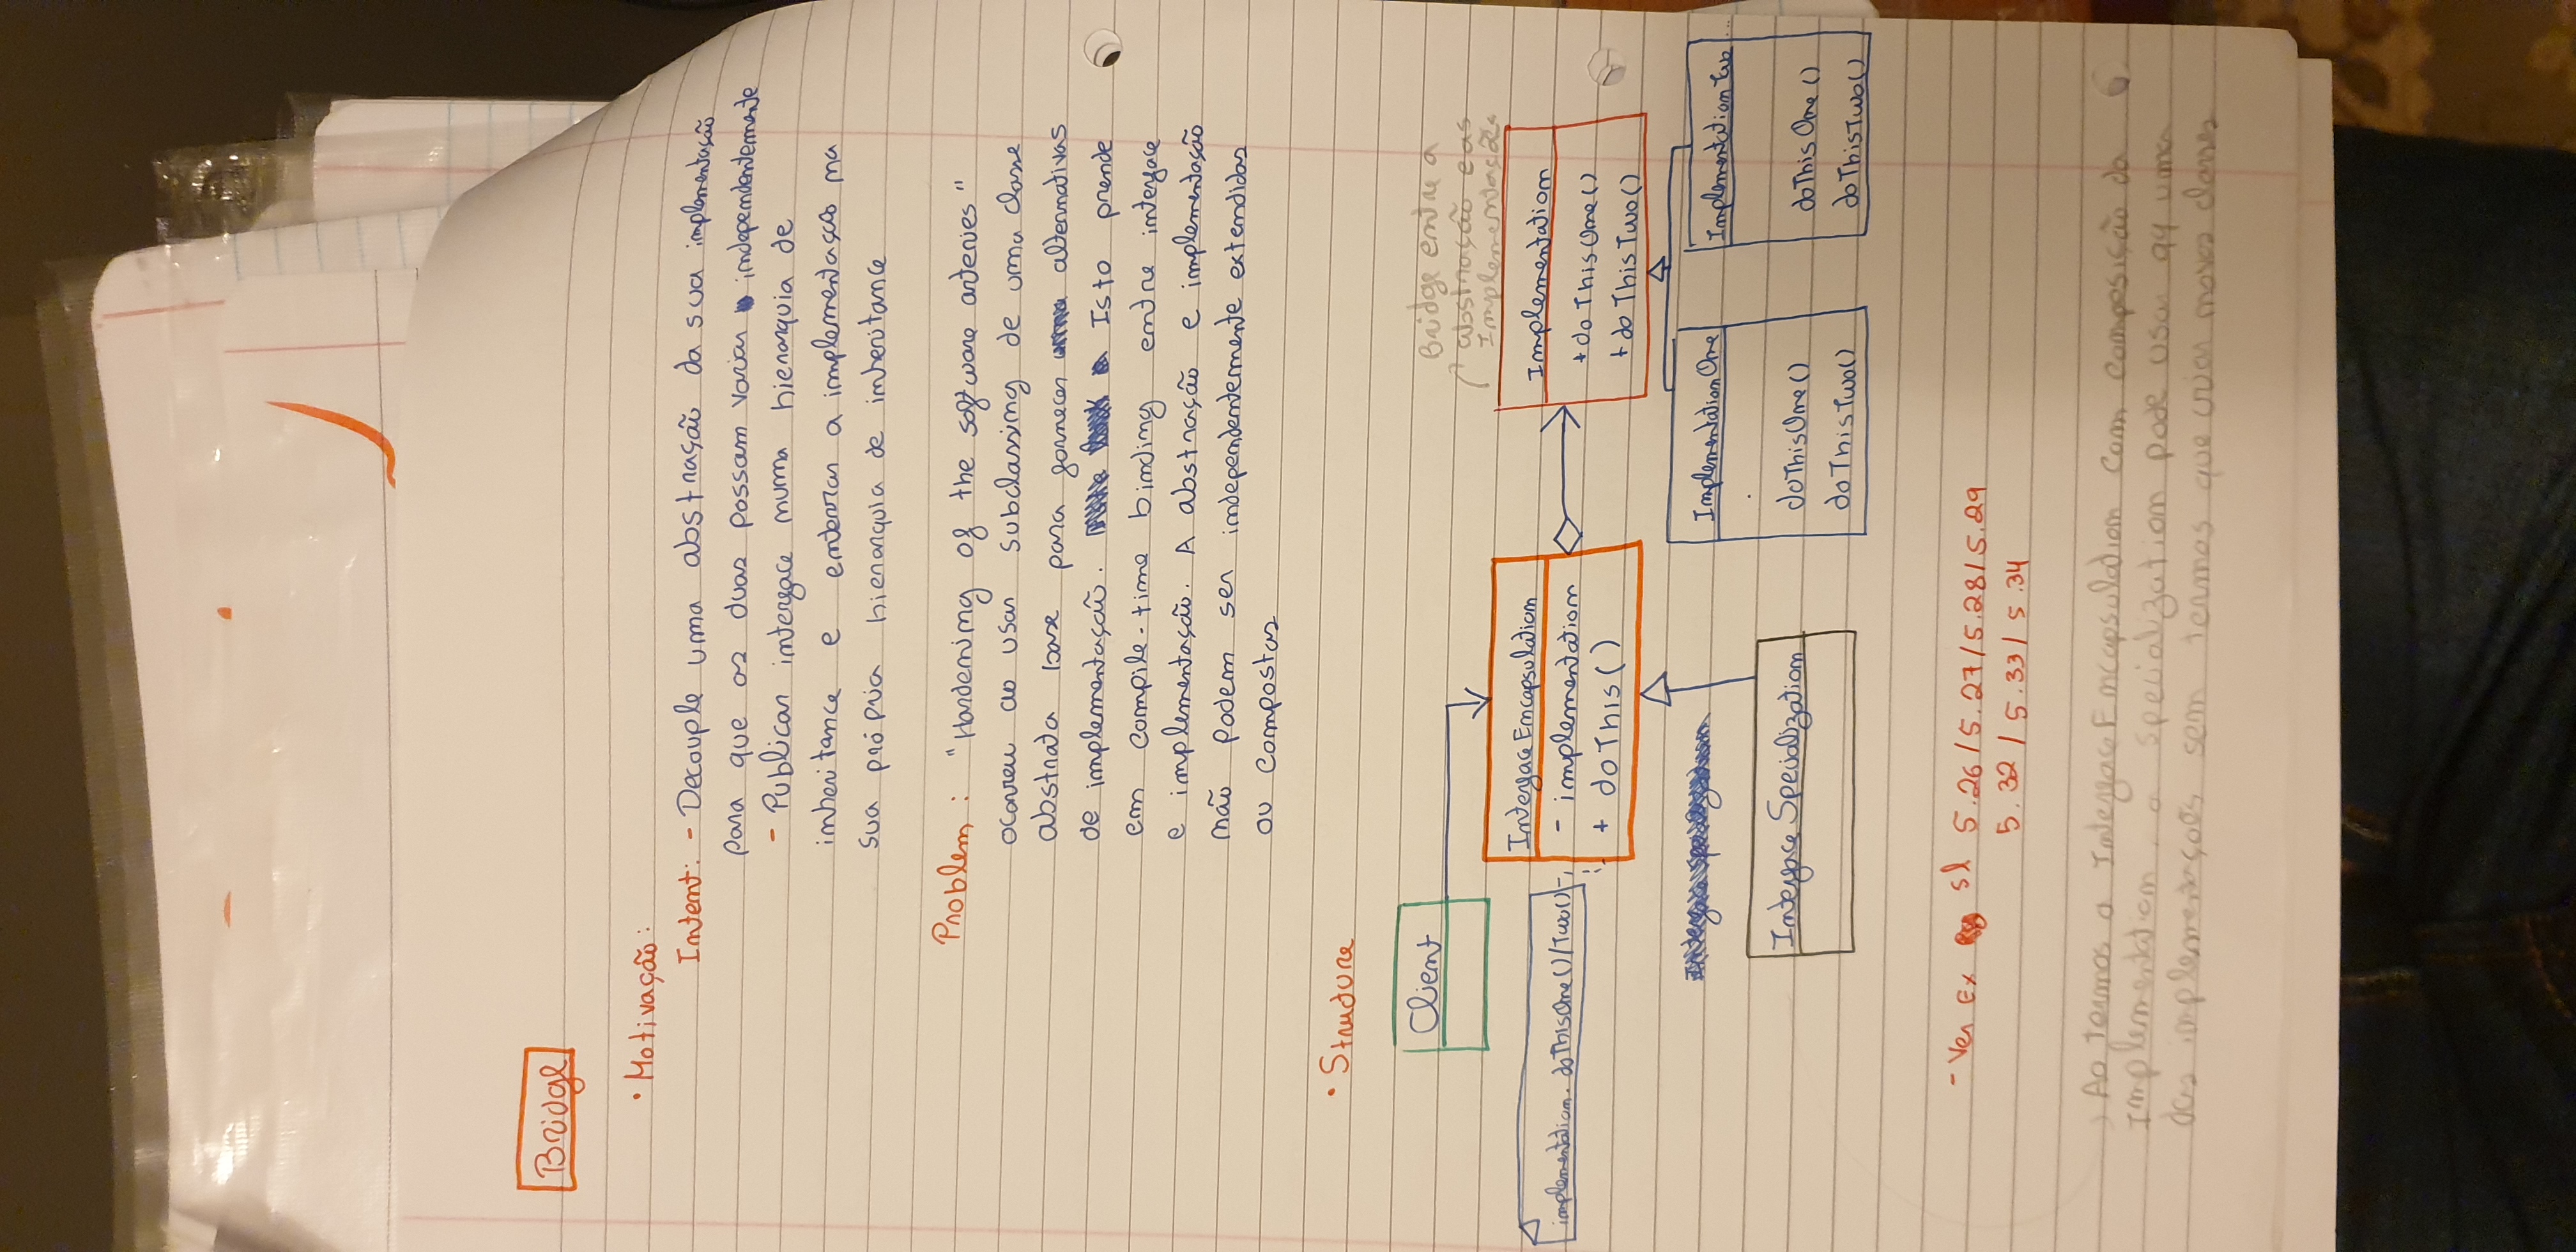 Bridge
• Motivação:
Intent: - Decouple uma abstração da sua implementação
para que as duas possam variar independentemente
- Publicar interface numa hierarquia de
inheritance e enterrar a implementação na
sua própria hierarquia de inheritance
Problem: "Hardening of the software arteries"
ocorreu ao usar subclassing de uma classe
abstrata base para fornecer alternativas
de implementação. Isto prende
em compile-time binding entre interface
e implementação. A abstração e implementação
não podem ser independentemente extendidas
ou compostas
• Structure
Client
Bridge entre a
abstração e as
Implementações
InterfaceEncapsulation
- implementation
+ doThis()
implementation.doThisOne()/Two()
Implementation
+ doThisOne()
+ doThisTwo()
Interface Specialization
ImplementationOne
doThisOne()
doThisTwo()
ImplementationTwo ...
doThisOne()
doThisTwo()
- Ver Ex sl 5.26/5.27/5.28/5.29
5.32 / 5.33 / 5.34
Ao termos a InterfaceEncapsulation com composição da
Implementation, a specialization pode usar qq uma
das implementações sem termos que criar novas classes